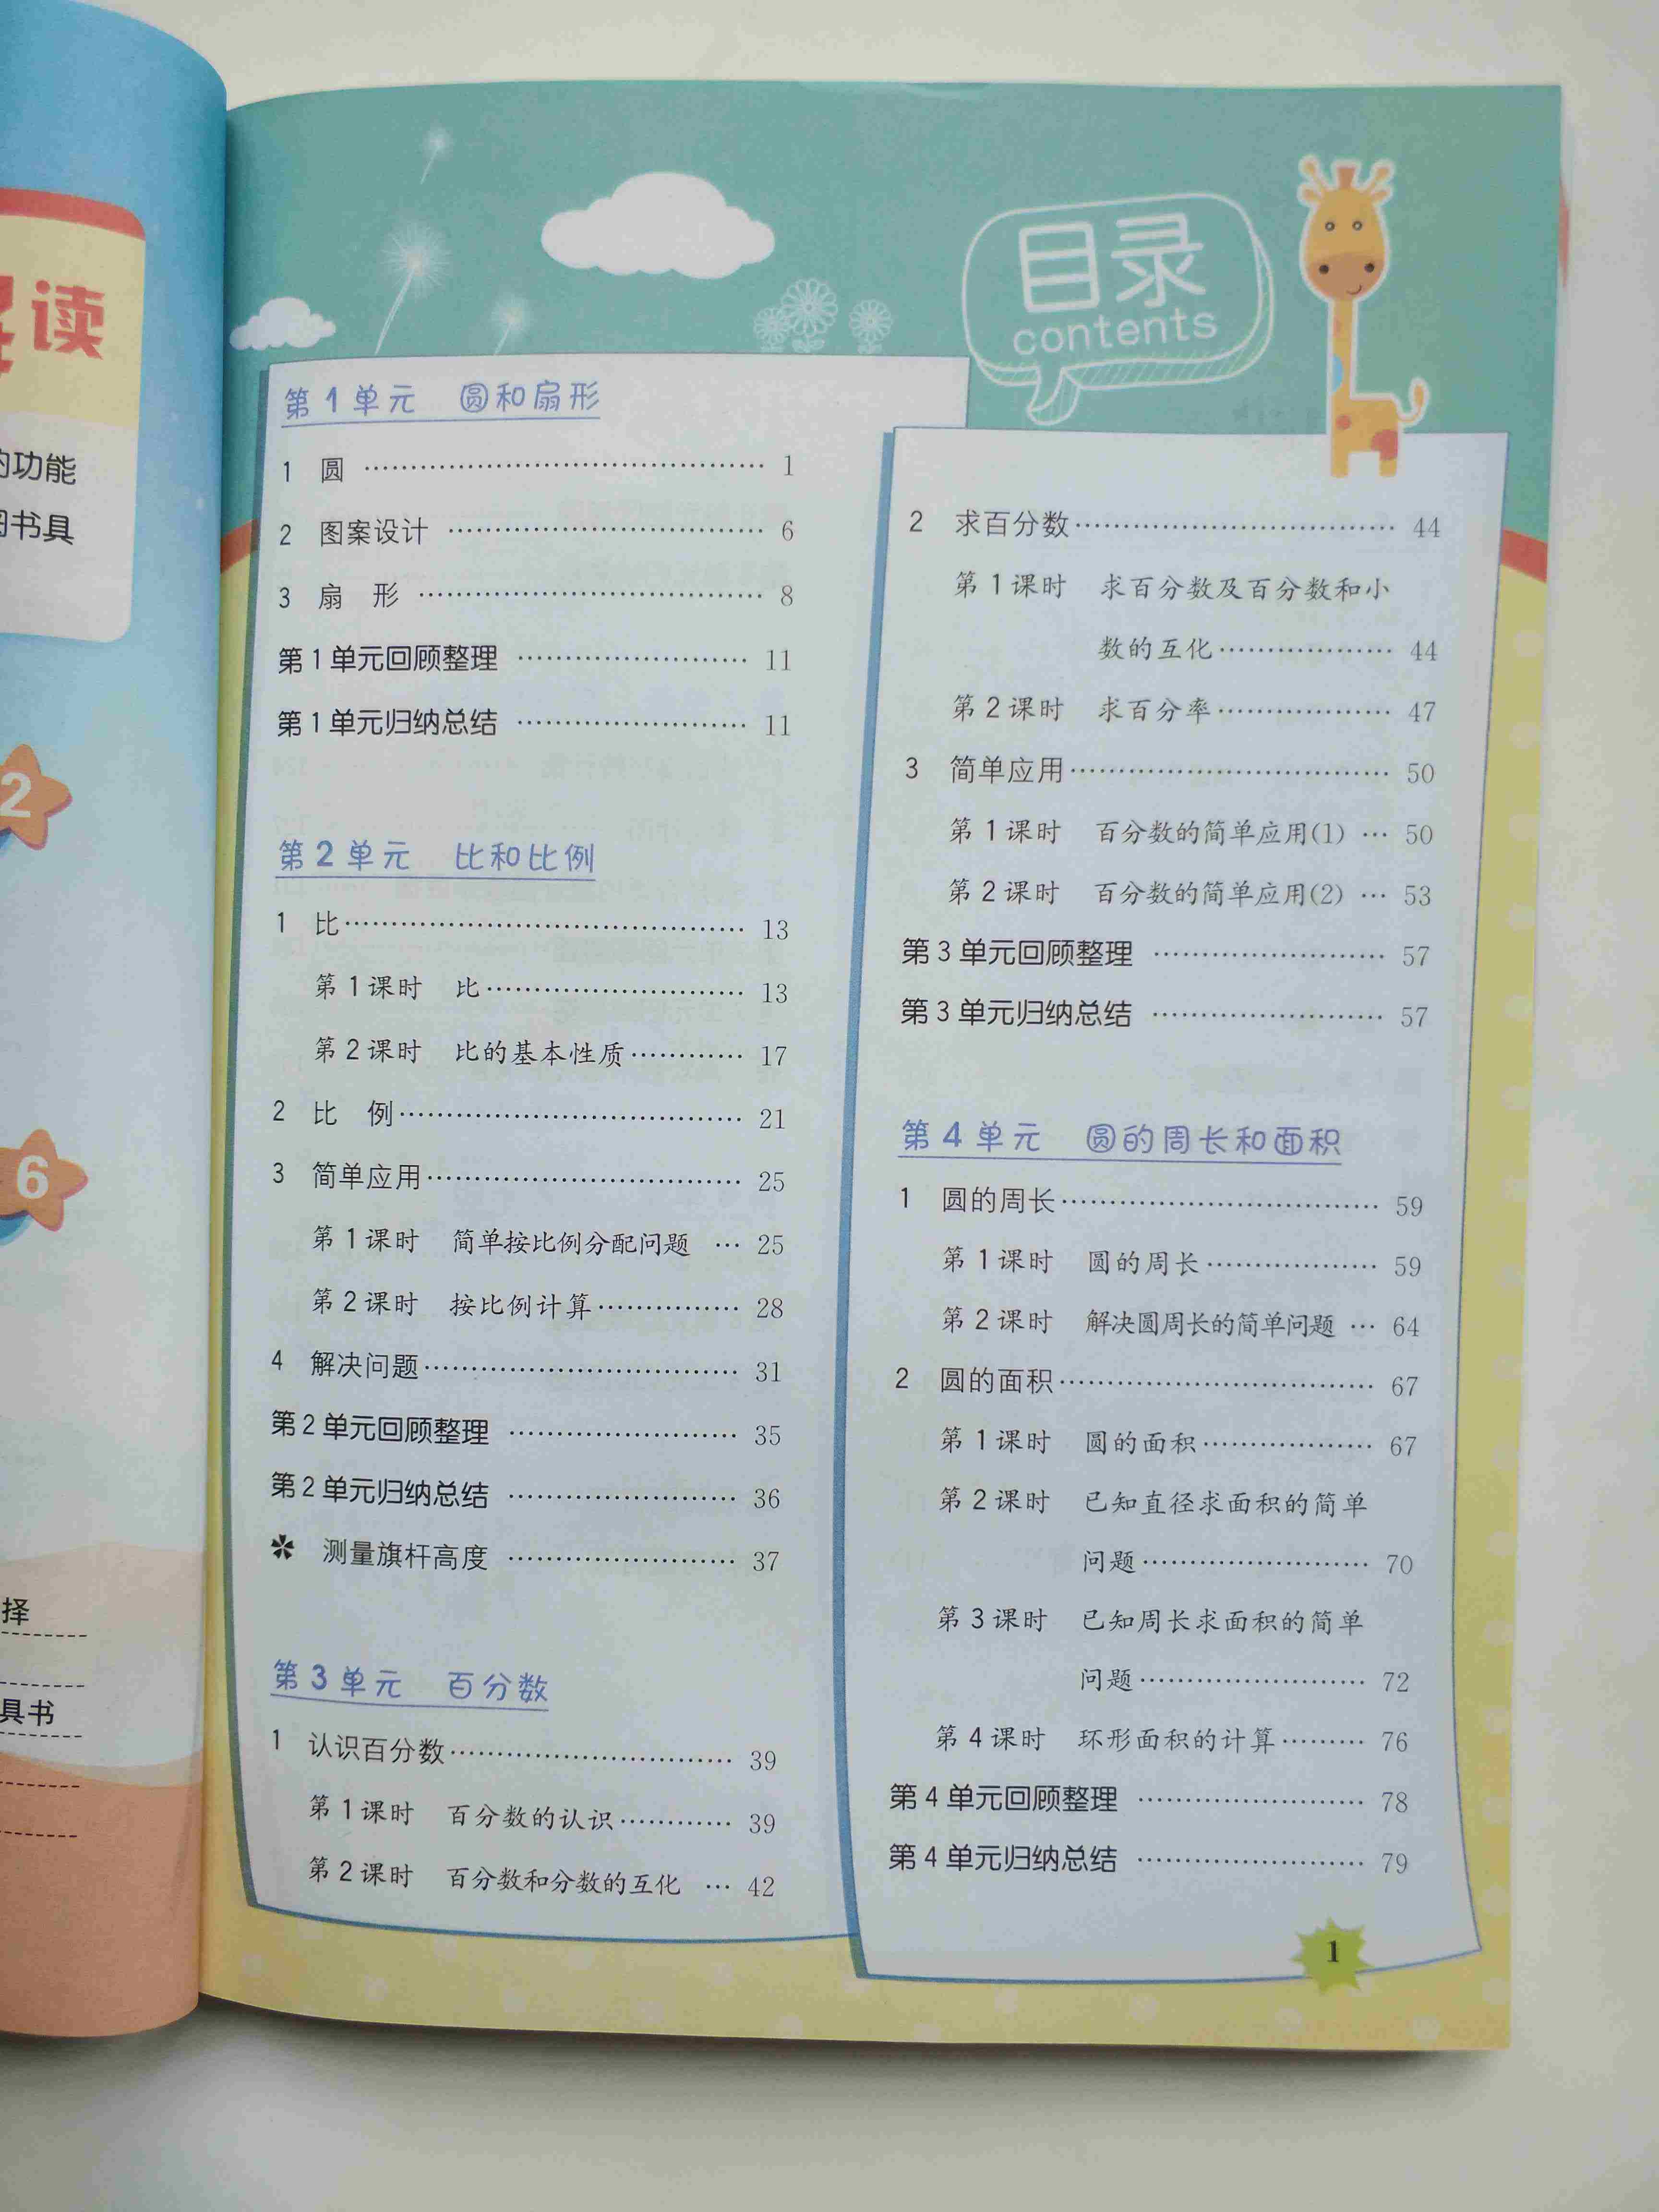 读
的功能
图书具
2
6
择
具书
目录
contents
第1单元 圆和扇形
1 圆 …… 1
2 图案设计 …… 6
3 扇 形 …… 8
第1单元回顾整理 …… 11
第1单元归纳总结 …… 11
第2单元 比和比例
1 比 …… 13
第1课时 比 …… 13
第2课时 比的基本性质 …… 17
2 比 例 …… 21
3 简单应用 …… 25
第1课时 简单按比例分配问题 … 25
第2课时 按比例计算 …… 28
4 解决问题 …… 31
第2单元回顾整理 …… 35
第2单元归纳总结 …… 36
✽ 测量旗杆高度 …… 37
第3单元 百分数
1 认识百分数 …… 39
第1课时 百分数的认识 …… 39
第2课时 百分数和分数的互化 … 42
2 求百分数 …… 44
第1课时 求百分数及百分数和小
数的互化 …… 44
第2课时 求百分率 …… 47
3 简单应用 …… 50
第1课时 百分数的简单应用(1) … 50
第2课时 百分数的简单应用(2) … 53
第3单元回顾整理 …… 57
第3单元归纳总结 …… 57
第4单元 圆的周长和面积
1 圆的周长 …… 59
第1课时 圆的周长 …… 59
第2课时 解决圆周长的简单问题 … 64
2 圆的面积 …… 67
第1课时 圆的面积 …… 67
第2课时 已知直径求面积的简单
问题 …… 70
第3课时 已知周长求面积的简单
问题 …… 72
第4课时 环形面积的计算 …… 76
第4单元回顾整理 …… 78
第4单元归纳总结 …… 79
1